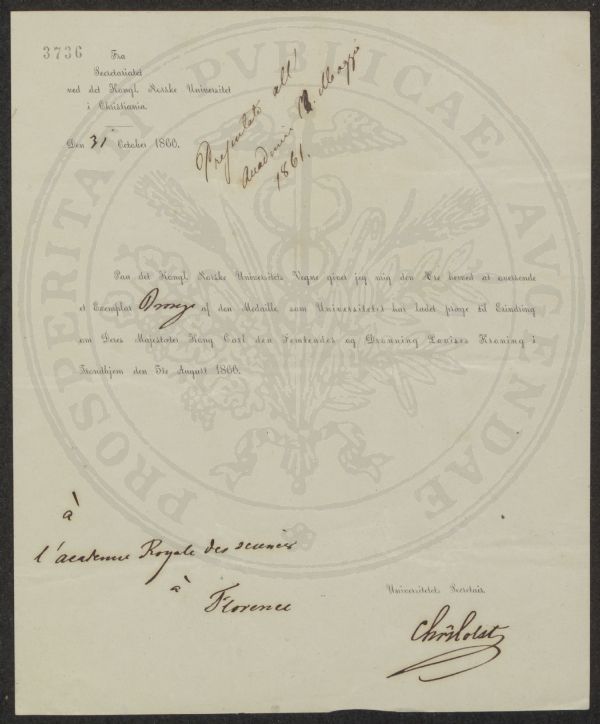 3736
Fra
Secretariatet
ved det Kongl. Norske Universitet
i Christiania.
Den 31 October 1860.
Presentato all'
Accademia Maggio
1861.
Paa det Kongl. Norske Universitets Vegne giver jeg mig den Ære herved at oversende
et Exemplar Bronze af den Medaille som Universitetet har ladet præge til Erindring
om Deres Majestæter Kong Carl den Femtendes og Dronning Lovises Kroning i
Trondhjem den 5te August 1860.
à
l'academie Royale des sciences
à
Florence
Universitetets Secretair.
Chr. Holst
PROSPERITATI PVBLICAE AVGENDAE